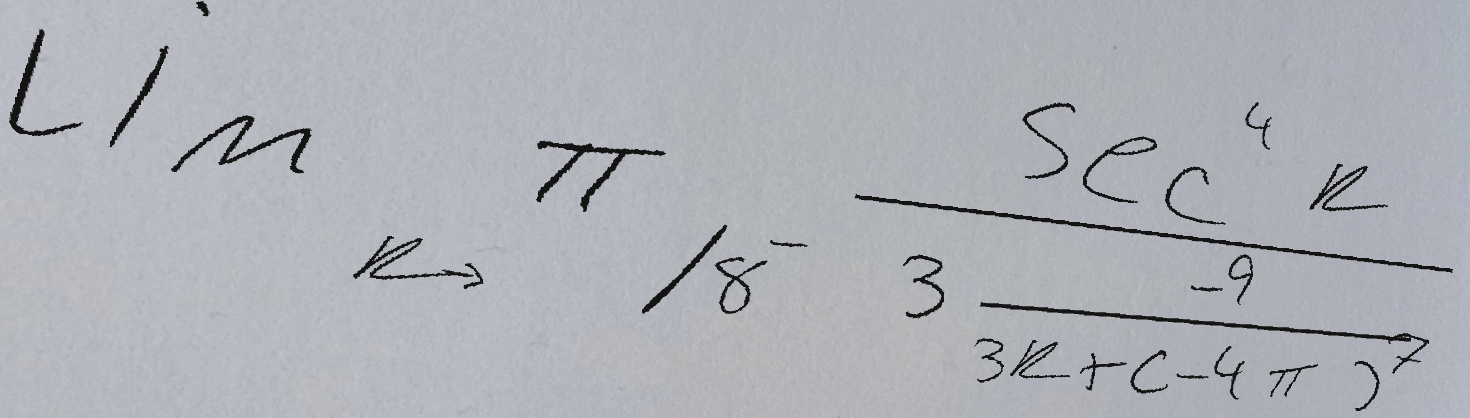 Lim k→ π/8⁻ sec⁴ k
3 -9
3k+(-4π)⁷